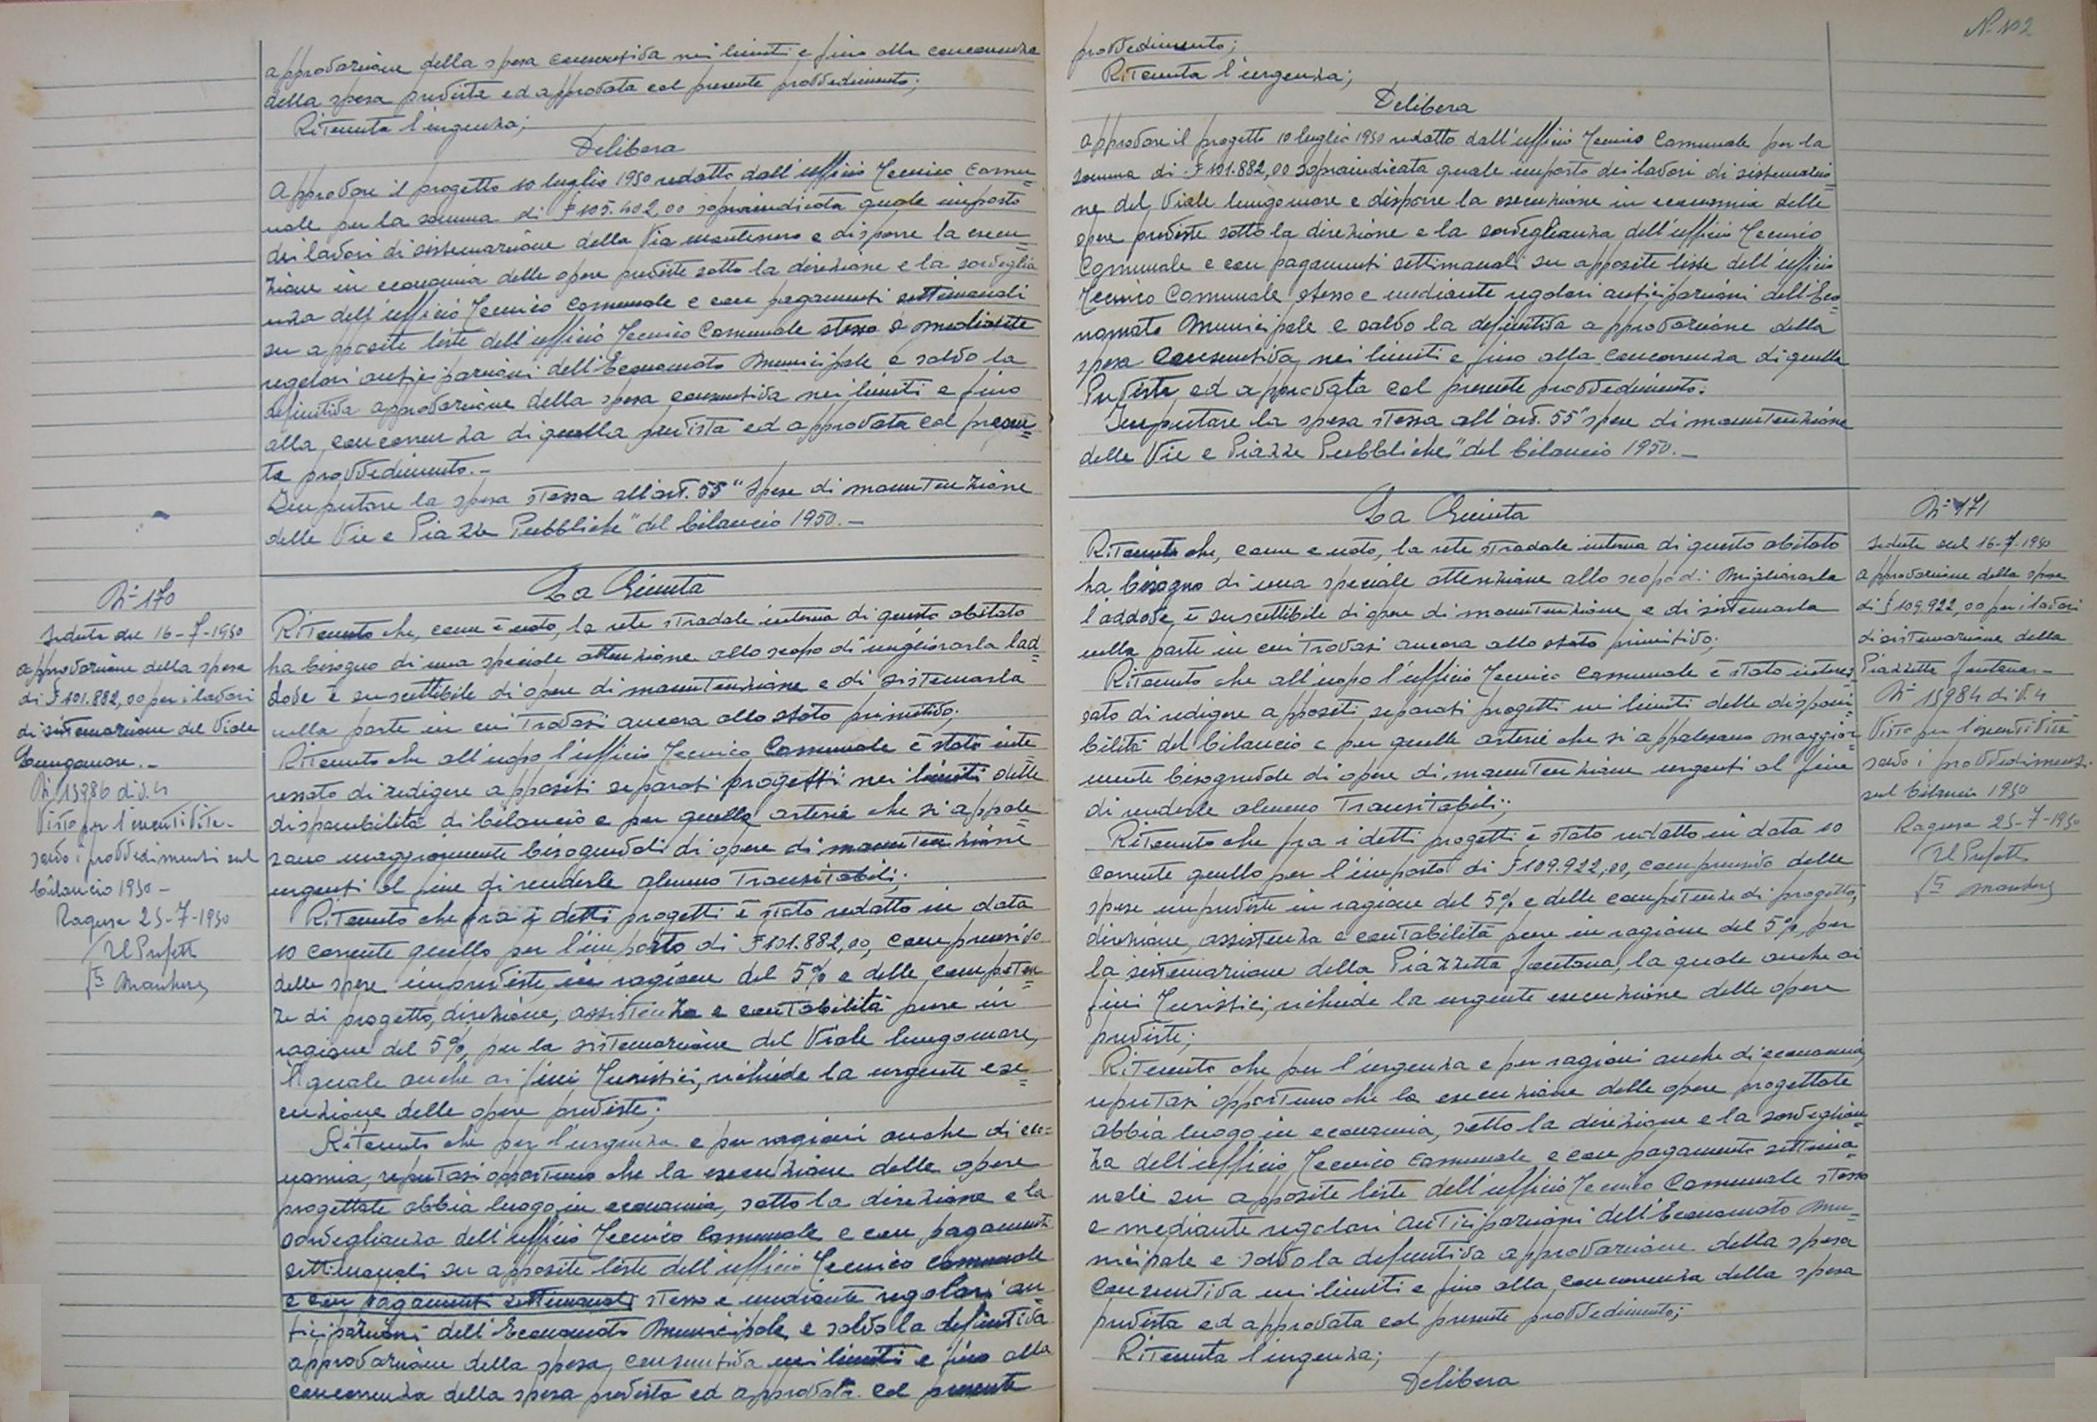 approvazione della spesa consuntiva nei limiti e fino alla concorrenza
della spesa prevista ed approvata col presente provvedimento;
Ritenuta l'urgenza;
Delibera
Approvare il progetto 10 luglio 1950 redatto dall'ufficio Tecnico Comu=
nale per la somma di £ 105.402,00 sopraindicata quale importo
dei lavori di sistemazione della Via e disporre la esecu=
zione in economia delle opere previste sotto la direzione e la sorveglia
nza dell'ufficio Tecnico Comunale e con pagamenti settimanali
su apposite liste dell'ufficio Tecnico Comunale stesso e mediante
regolari anticipazioni dell'Economato Municipale e salvo la
definitiva approvazione della spesa consuntiva nei limiti e fino
alla concorrenza di quella prevista ed approvata col presen=
te provvedimento.-
Imputare la spesa stessa all'art. 55 "Spese di manutenzione
delle Vie e Piazze Pubbliche" del bilancio 1950.-
N° 170
Seduta del 16-7-1950
approvazione della spesa
di £ 101.882,00 per i lavori
di sistemazione del Viale
Lungomare.-
N° 15986 div. 4
Visto per l'esecutività -
salvo i provvedimenti sul
bilancio 1950 -
Ragusa 25-7-1950
Il Prefetto
La Giunta
Ritenuto che, come è noto, la rete stradale interna di questo abitato
ha bisogno di una speciale attenzione allo scopo di migliorarla lad=
dove è suscettibile di opere di manutenzione e di sistemarla
nella parte in cui trovasi ancora allo stato primitivo;
Ritenuto che all'uopo l'ufficio Tecnico Comunale è stato inte
ressato di redigere appositi separati progetti nei limiti delle
disponibilità di bilancio e per quelle arterie che si appale
sano maggiormente bisognevoli di opere di manutenzione
urgenti al fine di renderle almeno transitabili;
Ritenuto che fra i detti progetti è stato redatto in data
10 corrente quello per l'importo di £ 101.882,00, comprensivo
delle spese impreviste in ragione del 5% e delle competen=
ze di progetto, direzione, assistenza e contabilità pure in
ragione del 5%, per la sistemazione del Viale lungomare,
il quale anche ai fini turistici, richiede la urgente ese=
cuzione delle opere previste;
Ritenuto che per l'urgenza e per ragioni anche di eco=
nomia, reputasi opportuno che la esecuzione delle opere
progettate abbia luogo in economia, sotto la direzione e la
sorveglianza dell'ufficio Tecnico Comunale e con pagamenti
settimanali su apposite liste dell'ufficio Tecnico Comunale
e con pagamenti settimanali stesso e mediante regolari an=
ticipazioni dell'Economato Municipale e salvo la definitiva
approvazione della spesa consuntiva nei limiti e fino alla
concorrenza della spesa prevista ed approvata col presente
N° 102
provvedimento;
Ritenuta l'urgenza;
Delibera
Approvare il progetto 10 luglio 1950 redatto dall'ufficio Tecnico Comunale per la
somma di £ 101.882,00 sopraindicata quale importo dei lavori di sistemazio=
ne del Viale lungomare e disporre la esecuzione in economia delle
opere previste sotto la direzione e la sorveglianza dell'ufficio Tecnico
Comunale e con pagamenti settimanali su apposite liste dell'ufficio
Tecnico Comunale stesso e mediante regolari anticipazioni dell'Eco=
nomato Municipale e salvo la definitiva approvazione della
spesa consuntiva nei limiti e fino alla concorrenza di quella
Prevista ed approvata col presente provvedimento.
Imputare la spesa stessa all'art. 55 "spese di manutenzione
delle Vie e Piazze Pubbliche" del bilancio 1950.-
La Giunta
Ritenuto che, come e noto, la rete stradale interna di questo abitato
ha bisogno di una speciale attenzione allo scopo di migliorarla
laddove è suscettibile di opere di manutenzione e di sistemarla
nella parte in cui trovasi ancora allo stato primitivo;
Ritenuto che all'uopo l'ufficio Tecnico Comunale è stato interes
sato di redigere appositi separati progetti nei limiti delle disponi=
bilità del bilancio e per quelle arterie che si appalesano maggior=
mente bisognevole di opere di manutenzione urgenti al fine
di renderle almeno transitabili;
Ritenuto che fra i detti progetti è stato redatto in data 10
corrente quello per l'importo di £ 109.922,00, comprensivo delle
spese impreviste in ragione del 5% e delle competenze di progetto,
direzione, assistenza e contabilità pure in ragione del 5%, per
la sistemazione della Piazzetta fontana, la quale anche ai
fini turistici, richiede la urgente esecuzione delle opere
previste;
Ritenuto che per l'urgenza e per ragioni anche di economia,
reputasi opportuno che la esecuzione delle opere progettate
abbia luogo in economia, sotto la direzione e la sorveglian=
za dell'ufficio Tecnico Comunale e con pagamento settima=
nali su apposite liste dell'ufficio Tecnico Comunale stesso
e mediante regolari anticipazioni dell'Economato Mu=
nicipale e salvo la definitiva approvazione della spesa
consuntiva nei limiti e fino alla concorrenza della spesa
prevista ed approvata col presente provvedimento;
Ritenuta l'urgenza;
Delibera
N° 171
Seduta del 16-7-1950
approvazione della spesa
di £ 109.922,00 per i lavori
di sistemazione della
Piazzetta fontana.-
N° 15984 div. 4
Visto per l'esecutività
salvo i provvedimenti
sul bilancio 1950
Ragusa 25-7-1950
Il Prefetto